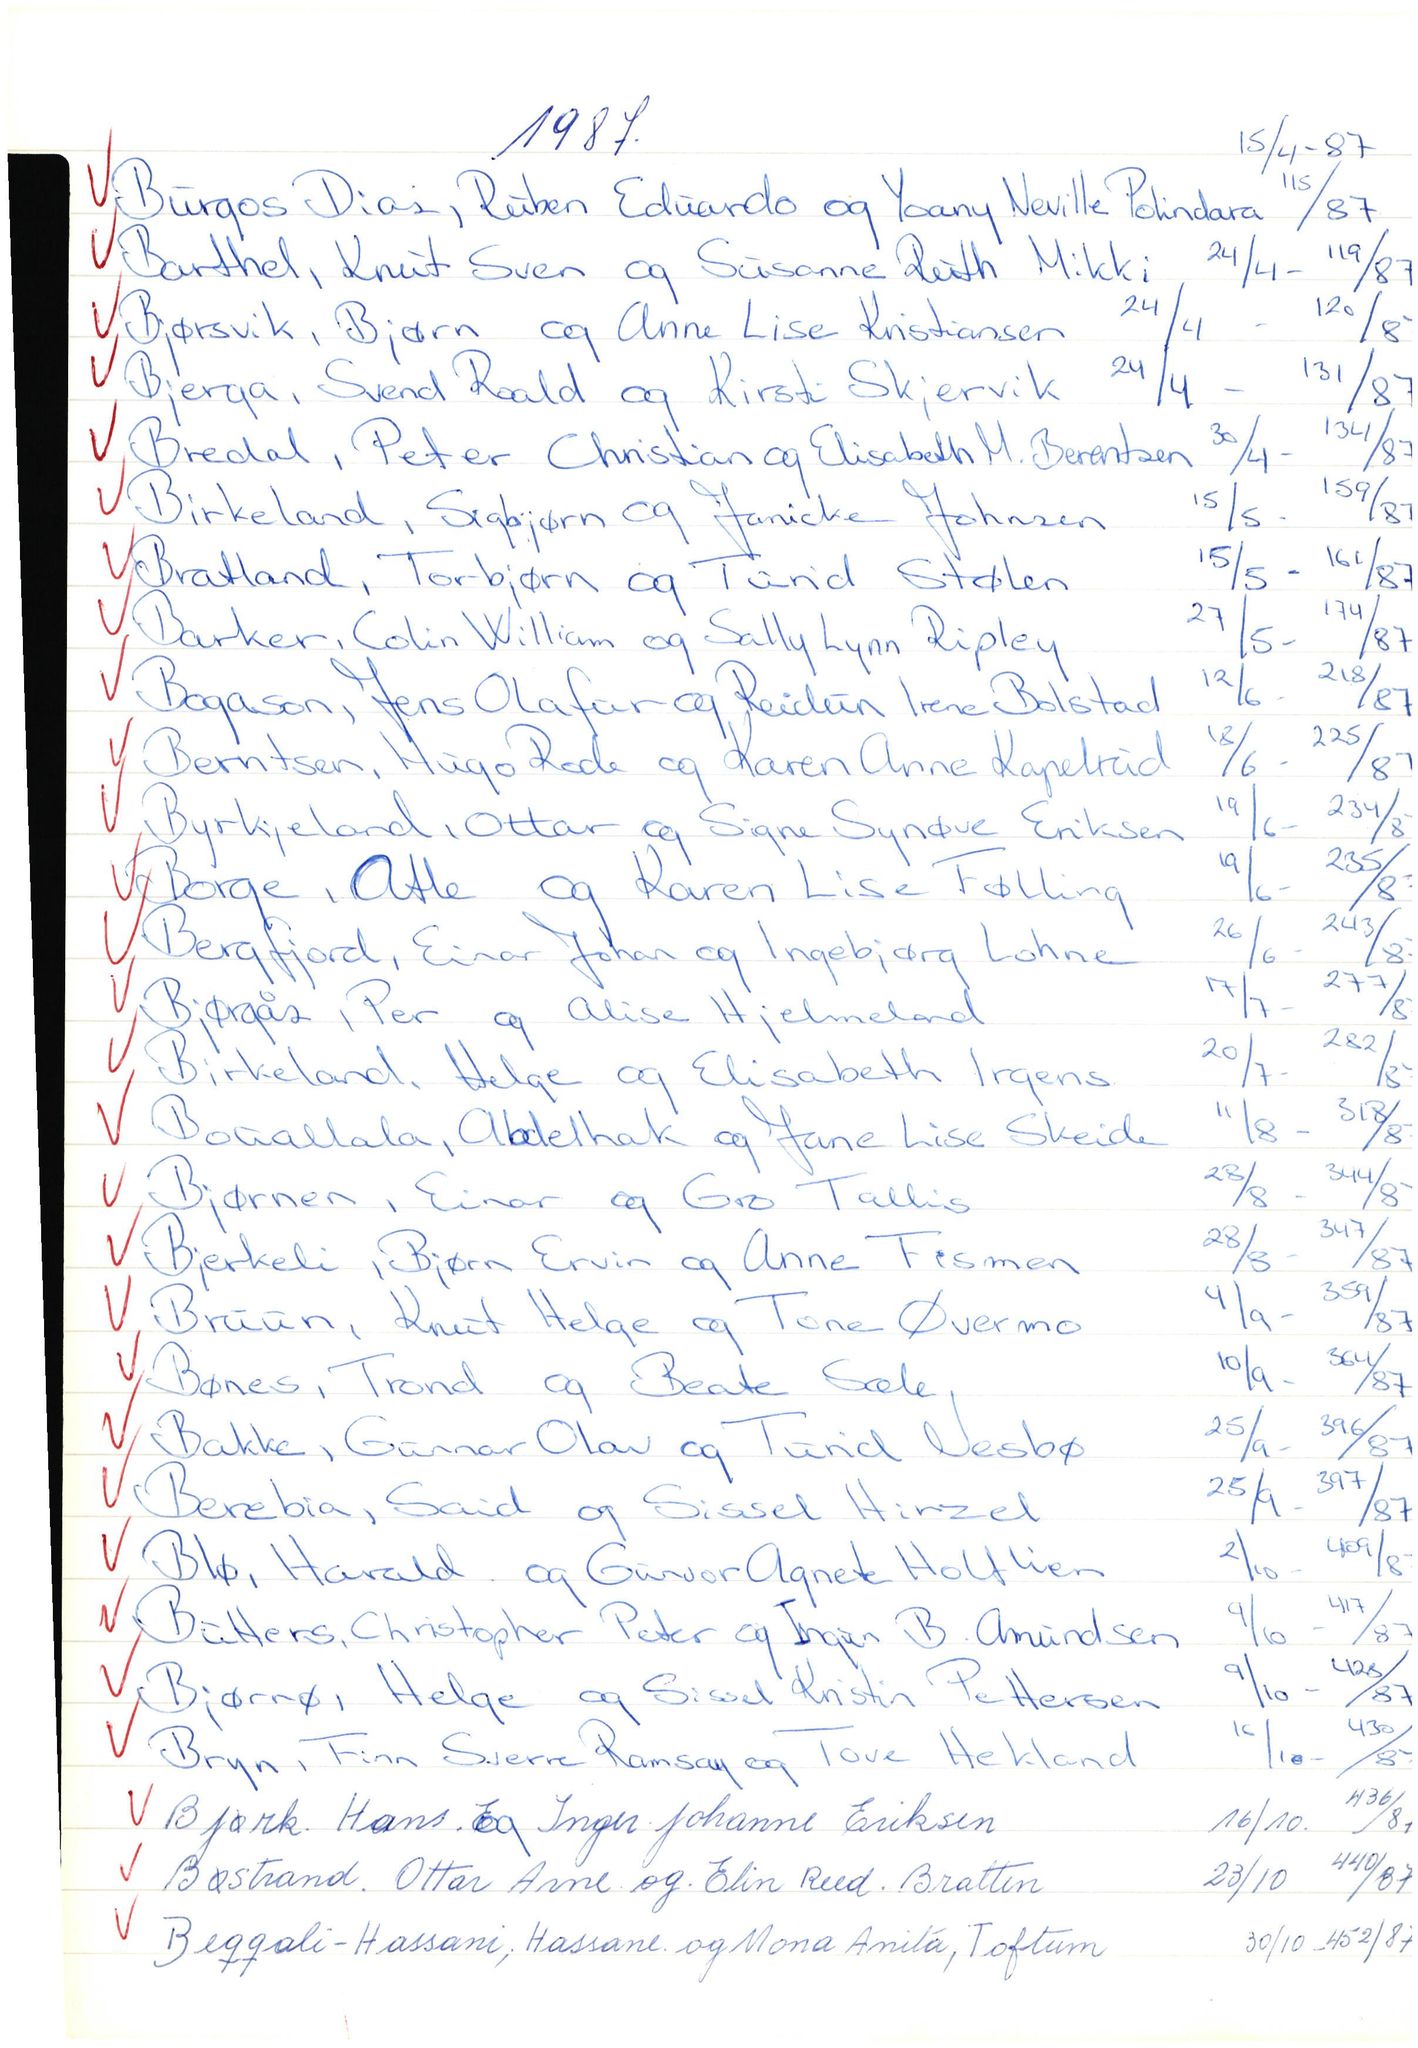 1987.
15/4-87
Burgos Dias, Ruben Eduardo og Yoany Neville Polindara 115/87
Barthel, Knut Sven og Susanne Ruth Mikki 24/4- 119/87
Bjørsvik, Bjørn og Anne Lise Kristiansen 24/4 - 120/8
Bjerga, Svend Roald og Kirsti Skjervik 24/4 - 131/87
Bredal, Peter Christian og Elisabeth M. Berentsen 30/4- 134/87
Birkeland, Sigbjørn og Janicke Johnsen 15/5- 159/87
Bratland, Torbjørn og Turid Stølen 15/5- 161/87
Barker, Colin William og Sally Lynn Ripley 27/5- 174/87
Bogason, Jens Olafur og Reidun Irene Bolstad 12/6- 218/87
Berntsen, Hugo Rode og Karen Anne Kapelrud 18/6- 225/87
Byrkjeland, Ottar og Signe Synøve Eriksen 19/6- 234/8
Borge, Atle og Karen Lise Følling 19/6- 235/8
Bergfjord, Einar Johan og Ingebjørg Lohne 26/6- 243/8
Bjørgås, Per og Alise Hjelmeland 17/7- 277/8
Birkeland, Helge og Elisabeth Irgens 20/7- 282/8
Bouallala, Abdelhak og Jane Lise Skeide 11/8- 318/8
Bjørnen, Einar og Gro Tallis 28/8- 344/8
Bjerkeli, Bjørn Ervin og Anne Fismen 28/8- 347/87
Bruun, Knut Helge og Tone Øvermo 4/9- 359/87
Bønes, Trond og Beate Sæle, 10/9- 364/87
Bakke, Gunnar Olav og Turid Nesbø 25/9- 396/87
Berebia, Said og Sissel Hirzel 25/9- 397/87
Blø, Harald og Gunvor Agnete Holtlien 2/10- 409/8
Butters, Christopher Peter og Ingun B. Amundsen 9/10- 417/87
Bjørnø, Helge og Sissel Kristin Pettersen 9/10- 428/87
Bryn, Finn Sverre Ramsay og Tove Hekland 16/10- 430/87
Bjørk. Hans. E og Inger Johanne Eriksen 16/10. 436/8
Bøstrand. Ottar Arne og. Elin Reed. Bratten 23/10 440/87
Beqqali-Hassani, Hassane og Mona Anita, Toftum 30/10-452/87